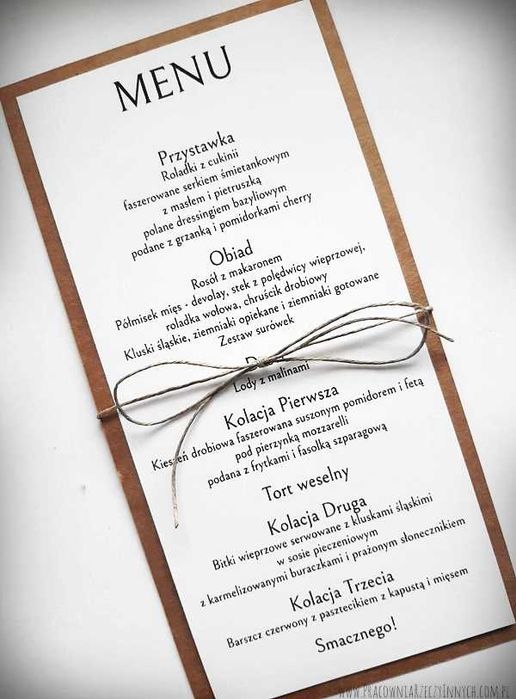 MENU
Przystawka
Roladki z cukinii
faszerowane serkiem śmietankowym
z masłem i pietruszką
polane dressingiem bazyliowym
podane z grzanką i pomidorkami cherry
Obiad
Rosół z makaronem
Półmisek mięs - devolay, stek z polędwicy wieprzowej,
roladka wołowa, chruścik drobiowy
Kluski śląskie, ziemniaki opiekane i ziemniaki gotowane
Zestaw surówek
Lody z malinami
Kolacja Pierwsza
Kieszeń drobiowa faszerowana suszonym pomidorem i fetą
pod pierzynką mozzarelli
podana z frytkami i fasolką szparagową
Tort weselny
Kolacja Druga
Bitki wieprzowe serwowane z kluskami śląskimi
w sosie pieczeniowym
z karmelizowanymi buraczkami i prażonym słonecznikiem
Kolacja Trzecia
Barszcz czerwony z pasztecikiem z kapustą i mięsem
Smacznego!
WWW.PRACOWNIARZECZYINNYCH.COM.PL